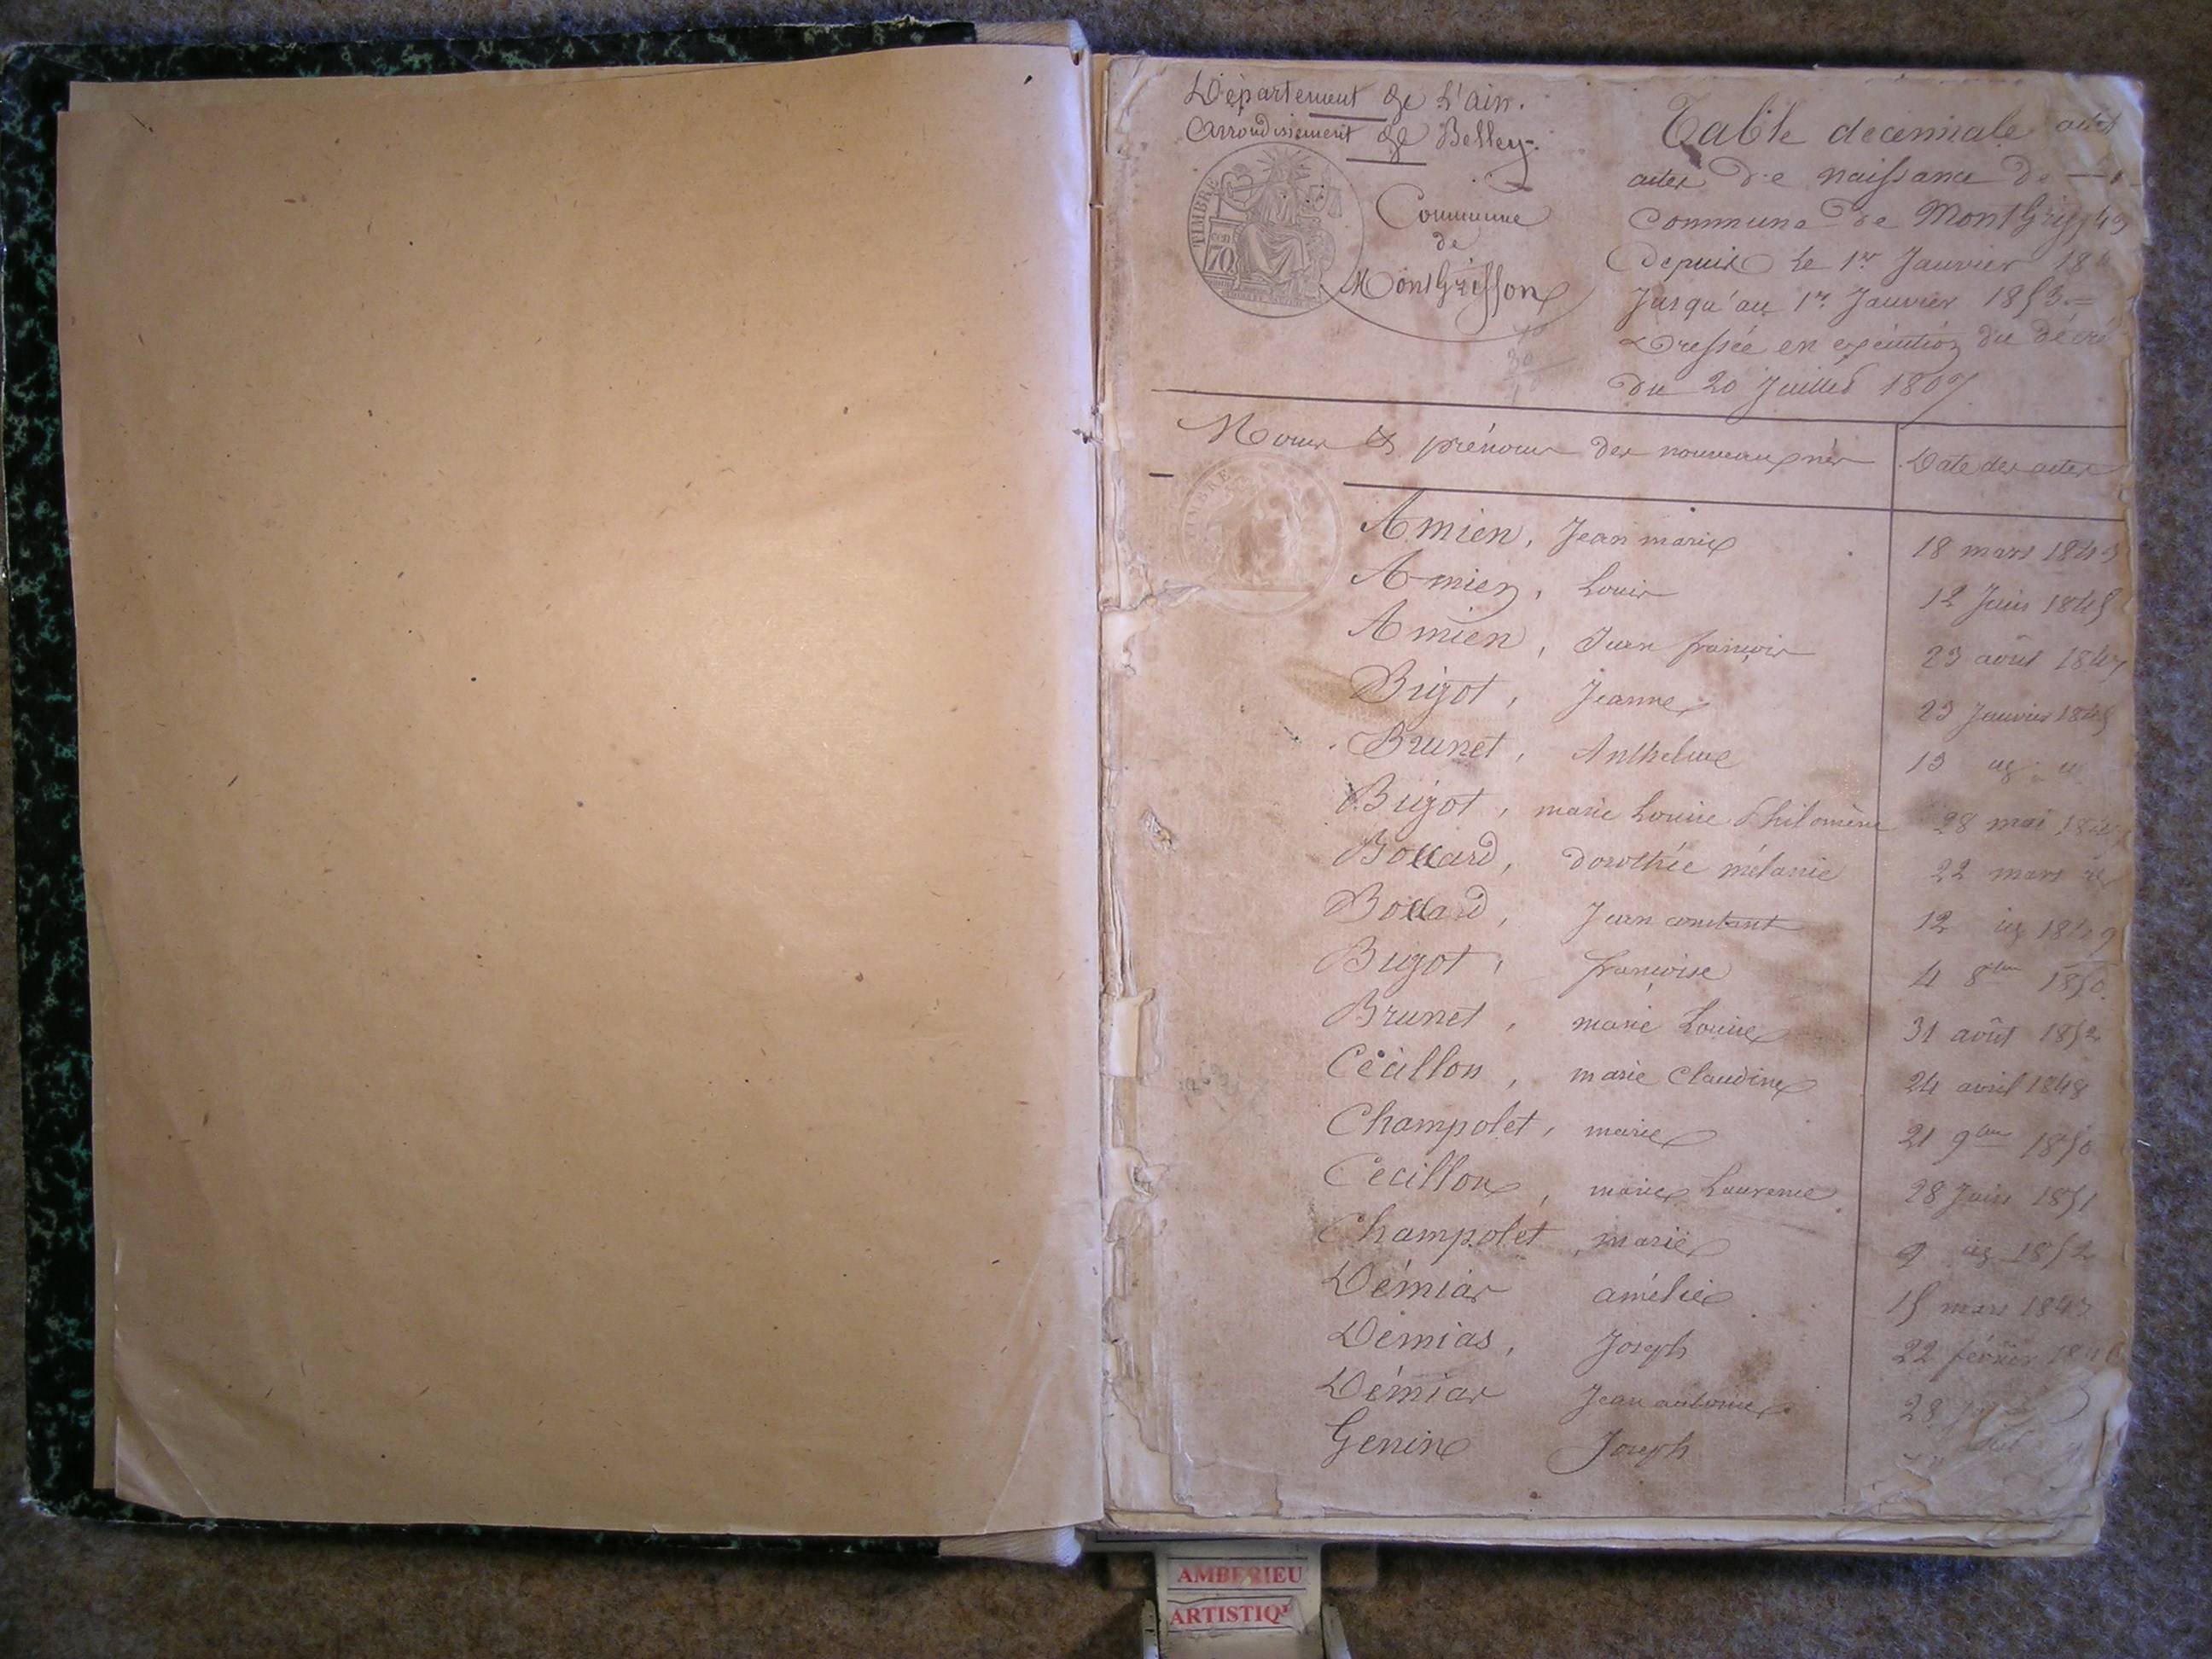 Département de L'ain.
Arrondissement de Belley.
TIMBRE
70
Commune
de
MontGriffon
Table décennale
actes de naissance de
Commune de MontGriffon
Depuis le 1er Janvier 18
Jusqu'au 1er Janvier 1853.=
Dressée en exécution du décre
du 20 Juillet 1807.
Noms & prénoms des nouveaux nés Date des actes
TIMBRE
Amien, Jean marie 18 mars 1843
Amien, Louis 12 Juin 1845
Amien, Jean françois 23 août 1847
Bigot, Jeanne 23 Janvier 1845
Brunet, Anthelme 13
Bigot, marie Louise Philomène 28 mai
Bollard, dorothée mélanie 22 mars
Bollard, Jean constant 12 id 1849
Bigot, françoise 4 8bre 1850.
Brunet, marie Louise 31 août 1852
Cécillon, marie Claudine 24 avril 1848
Champolet, marie 21 9bre 1850
Cecillon, marie Laurence 28 Juin 1851
Champolet, marie 9 id 1852
Démias amélie 15 mars 1843
Démias, Joseph 22 février
Démias Jean antoine 28
Genin Joseph
AMBERIEU
ARTISTIQ